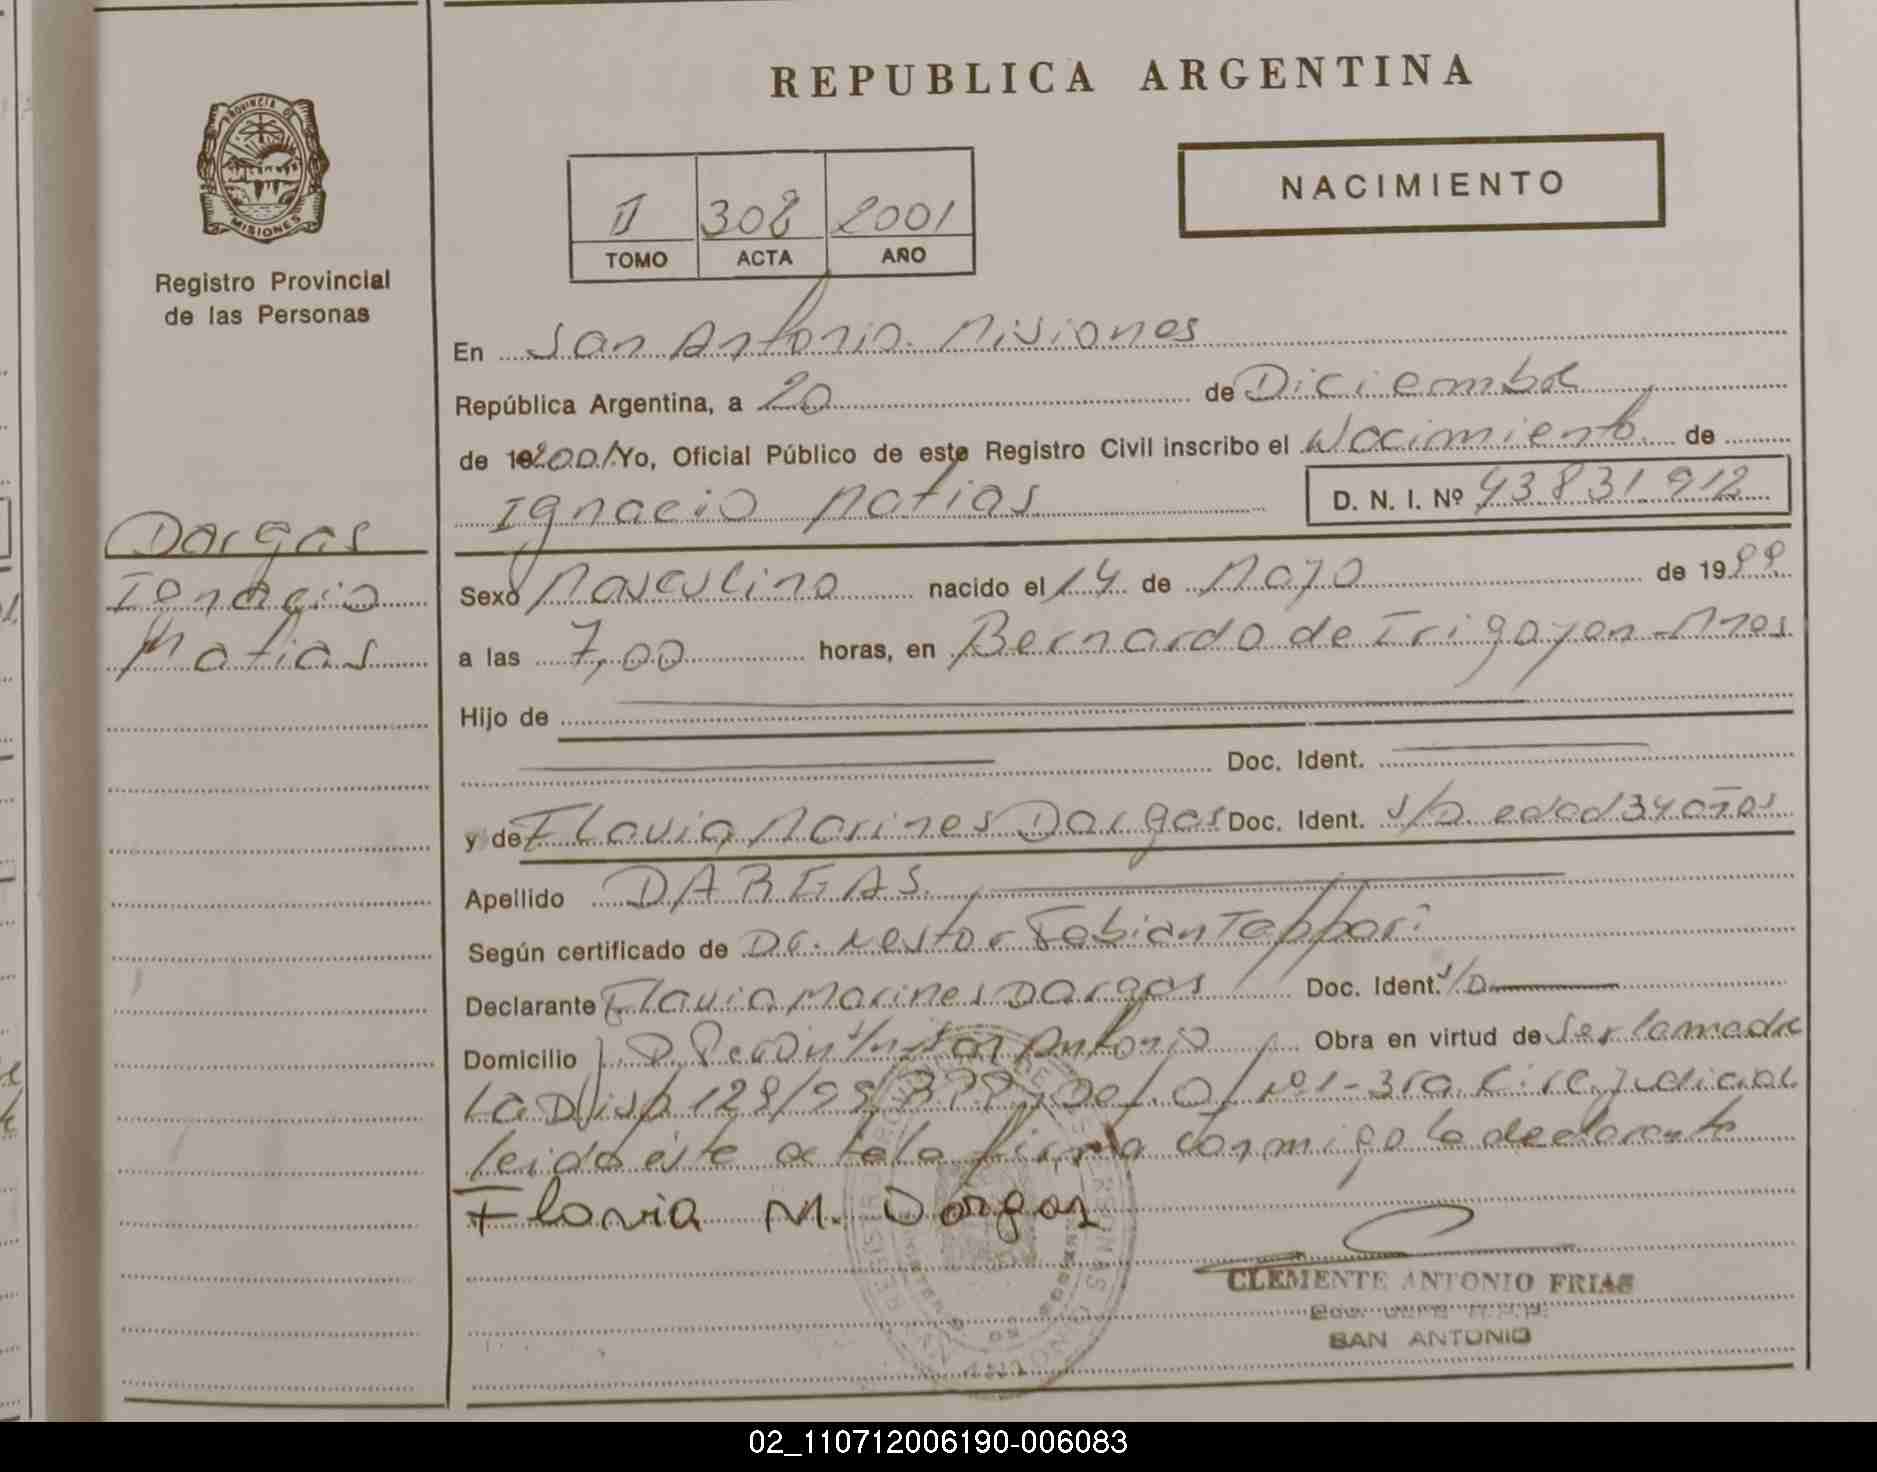 REPUBLICA ARGENTINA
PROVINCIA DE MISIONES
Registro Provincial
de las Personas
NACIMIENTO
II 308 2001
TOMO ACTA AÑO
En San Antonio. Misiones
República Argentina, a 20 de Diciembre
de 2001 Yo, Oficial Público de este Registro Civil inscribo el Nacimiento de
Ignacio Matias D. N. I. Nº 43831912
Dargas
Ignacio
Matias
Sexo Masculino nacido el 14 de Mayo de 1999
a las 7,00 horas, en Bernardo de Irigoyen - Mnes
Hijo de
Doc. Ident.
y de Flavia Marines Dargas Doc. Ident. s/D edad 34 años
Apellido DARGAS.
Según certificado de Dr. Nestor Fabian Teppari
Declarante Flavia Marines Dargas Doc. Ident. s/D
Domicilio J. D Peron s/n - San Antonio Obra en virtud de Ser la madre
La Disp 128/99 Def. Of Nº 1 - 3ra Circ. judicial
leida éste acta la firma conmigo la declarante
Flavia M. Dargas
CLEMENTE ANTONIO FRIAS
SAN ANTONIO
02_110712006190-006083